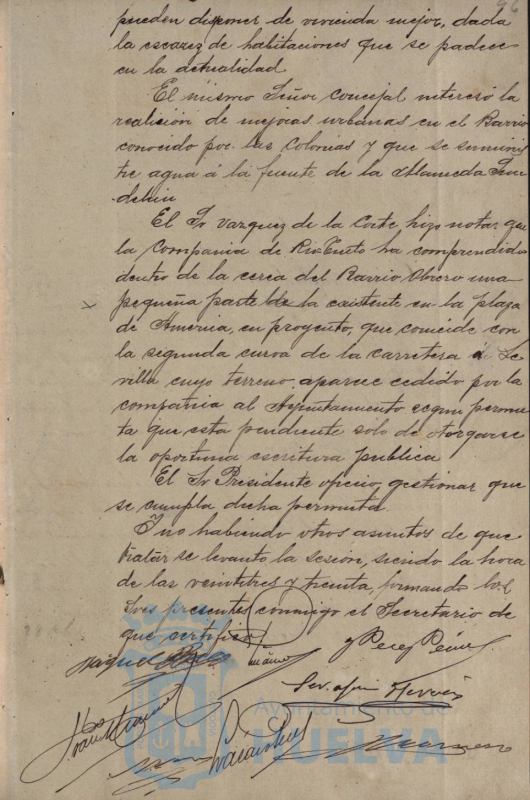 96
pueden disponer de vivienda mejor, dada
la escasez de habitaciones que se padece
en la actualidad
El mismo Señor Concejal interesó la
realisión de mejoras urbanas en el Barrio
conocido por las Colonias y que se suminis
tre agua á la fuente de la Alameda Sun
dehin
El Sr Vazquez de la Corte hizo notar que
la Compañia de Rio-Tinto ha comprendido
dentro de la cerca del Barrio Obrero una
pequeña parte de la existente en la plaza
de America, en proyecto, que coincide con
la segunda curva de la carretera á Se
villa cuyo terreno aparece cedido por la
compañia al Ayuntamiento segun permu
ta que esta pendiente solo de otorgarse
la oportuna escritura publica
El Sr Presidente ofrecio, gestionar que
se cumpla dicha permuta.
Y no habiendo otros asuntos de que
tratar se levanto la sesión, siendo la hora
de las veintitres y treinta, firmando los
Sres presentes conmigo el Secretario de
que certifico
Miguel
y Perez
Ayuntamiento de
HUELVA